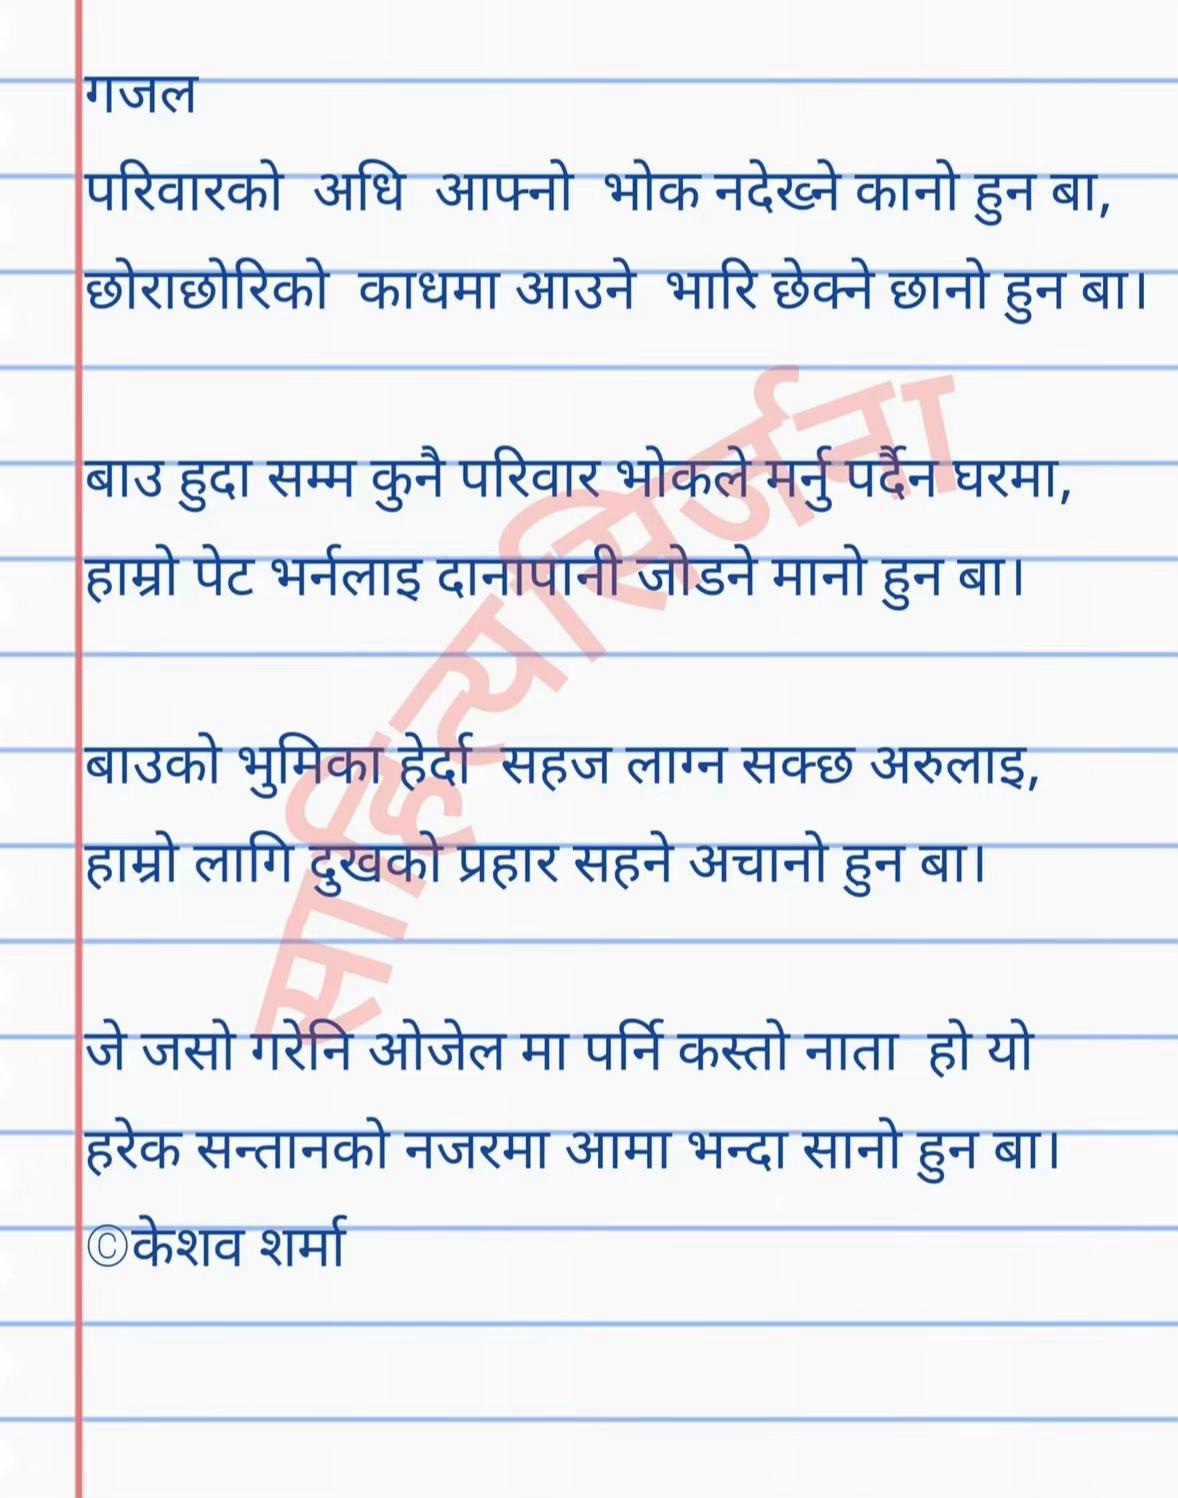 गजल
परिवारको अधि आफ्नो भोक नदेख्ने कानो हुन बा,
छोराछोरिको काधमा आउने भारि छेक्ने छानो हुन बा।
बाउ हुदा सम्म कुनै परिवार भोकले मर्नु पर्दैन घरमा,
हाम्रो पेट भर्नलाइ दानापानी जोडने मानो हुन बा।
बाउको भुमिका हेर्दा सहज लाग्न सक्छ अरुलाइ,
हाम्रो लागि दुखको प्रहार सहने अचानो हुन बा।
जे जसो गरेनि ओजेल मा पर्नि कस्तो नाता हो यो
हरेक सन्तानको नजरमा आमा भन्दा सानो हुन बा।
©केशव शर्मा
साहित्यसिर्जना